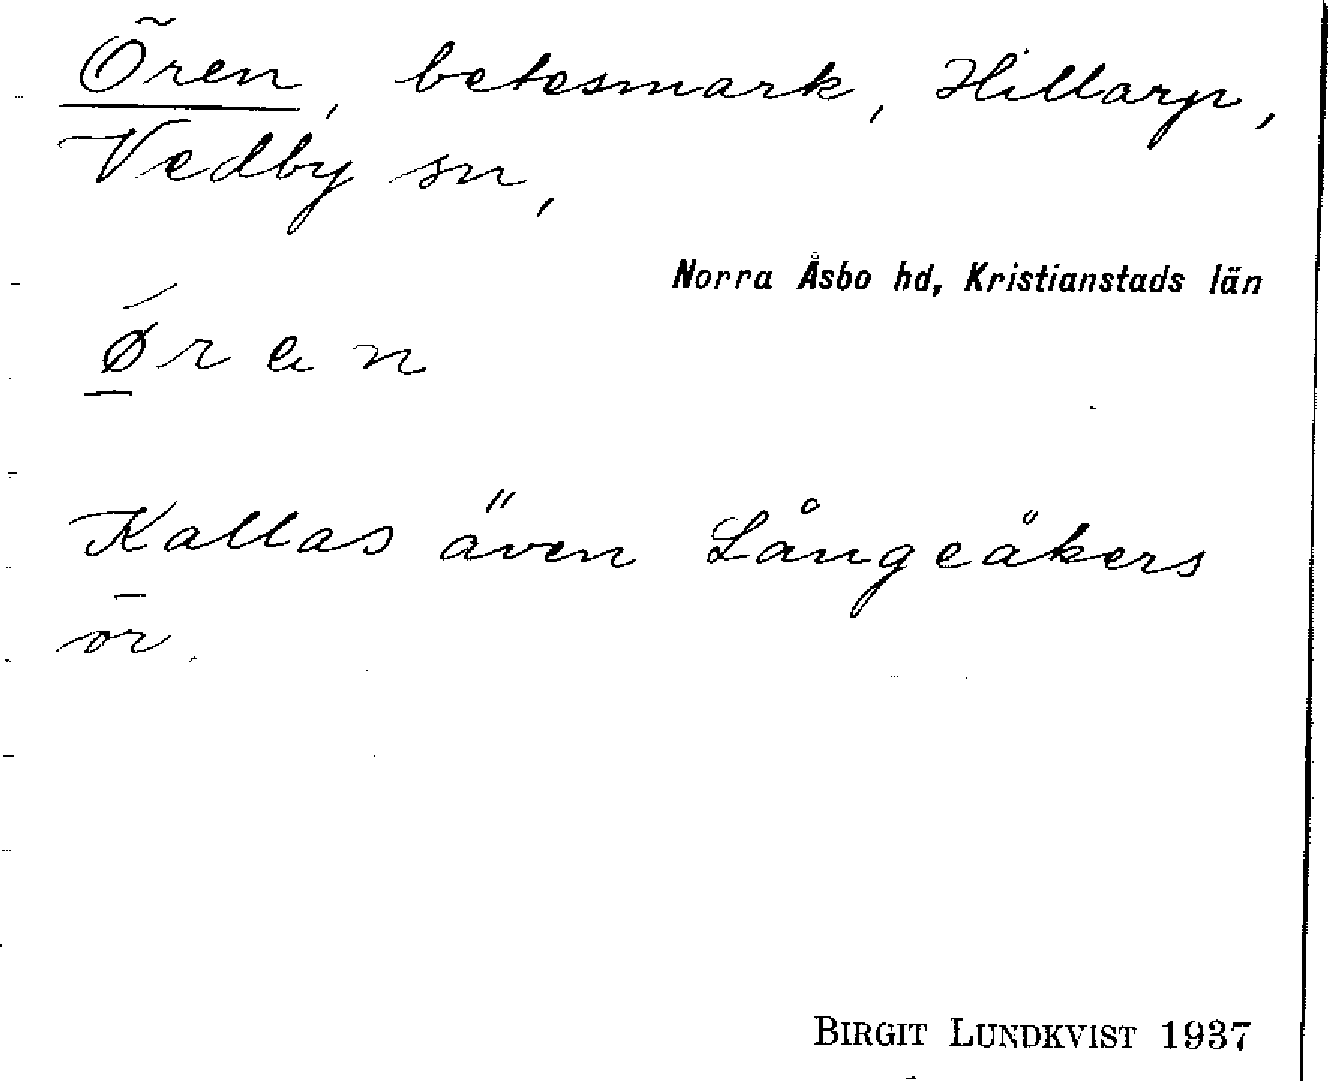 Ören, betesmark, Hillarp,
Vedby sn,
Norra Åsbo hd, Kristianstads län
ǿ̱ r a n
Kallas även Långeåkers
ör.
BIRGIT LUNDKVIST 1937